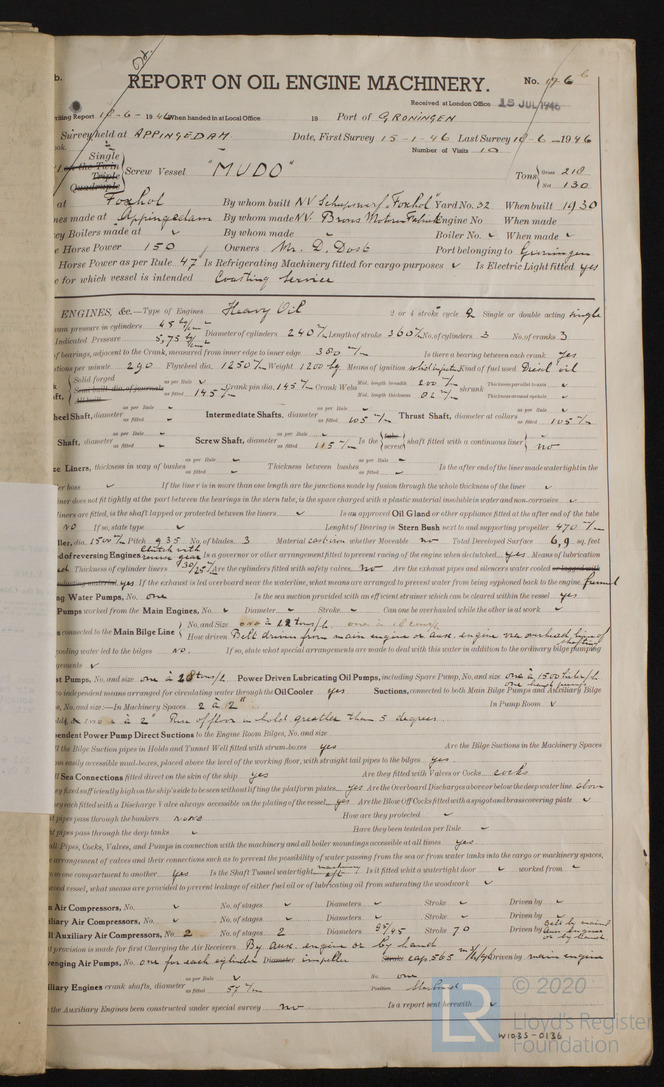 REPORT ON OIL ENGINE MACHINERY. No.
Received at London Office 15 JUL 1946
Writing Report 10-6-1946 When handed in at Local Office 19 Port of GRONINGEN
Survey held at APPINGEDAM Date, First Survey 15-1-46 Last Survey 10-6-1946
Number of Visits 10
Single
on the Twin
Triple
Quadruple
Screw Vessel "MUDO" Tons Gross 210
Net 130
at Foxhol By whom built NV Scheepswerf "Foxhol" Yard No. 32 When built 1930
nes made at Appingedam By whom made NV. Brons Motoren Fabriek Engine No When made
ey Boilers made at By whom made Boiler No. When made
e Horse Power 150 Owners Mr. D. Port belonging to Groningen
Horse Power as per Rule 47 Is Refrigerating Machinery fitted for cargo purposes Is Electric Light fitted yes
e for which vessel is intended Coasting Service
ENGINES, &c.—Type of Engines Heavy Oil 2 or 4 stroke cycle 2 Single or double acting single
um pressure in cylinders 45 kg/cm² Diameter of cylinders 240 m/m Length of stroke 360 m/m No. of cylinders 3 No. of cranks 3
Indicated Pressure 5,75 kg/cm²
of bearings, adjacent to the Crank, measured from inner edge to inner edge 380 m/m Is there a bearing between each crank yes
tions per minute 290 Flywheel dia. 1250 m/m Weight 1200 kg Means of ignition solid injection Kind of fuel used Diesel oil
Solid forged as per Rule
aft, dia. of journals as fitted 145 m/m Crank pin dia. 145 m/m Crank Webs Mid. length breadth 200 m/m Thickness parallel to axis
All built Mid. length thickness 82 m/m shrunk Thickness around eyehole
heel Shaft, diameter as per Rule as fitted Intermediate Shafts, diameter as per Rule as fitted 105 m/m Thrust Shaft, diameter at collars as per Rule as fitted 105 m/m
Shaft, diameter as per Rule as fitted Screw Shaft, diameter as per Rule as fitted 115 m/m Is the tube screw shaft fitted with a continuous liner no
ze Liners, thickness in way of bushes as per Rule as fitted Thickness between bushes as per Rule as fitted Is the after end of the liner made watertight in the
er boss If the liner is in more than one length are the junctions made by fusion through the whole thickness of the liner
iner does not fit tightly at the part between the bearings in the stern tube, is the space charged with a plastic material insoluble in water and non-corrosive
liners are fitted, is the shaft lapped or protected between the liners Is an approved Oil Gland or other appliance fitted at the after end of the tube
NO If so, state type Length of Bearing in Stern Bush next to and supporting propeller 470 m/m
ller, dia. 1500 m/m Pitch 935 No. of blades 3 Material cast iron whether Moveable no Total Developed Surface 6,9 sq. feet
d of reversing Engines Clutch with reverse gear Is a governor or other arrangement fitted to prevent racing of the engine when declutched yes Means of lubrication
ed Thickness of cylinder liners 30/25 m/m Are the cylinders fitted with safety valves no Are the exhaust pipes and silencers water cooled or lagged with
nducting material yes If the exhaust is led overboard near the waterline, what means are arranged to prevent water from being syphoned back to the engine funnel
ng Water Pumps, No. one Is the sea suction provided with an efficient strainer which can be cleared within the vessel yes
Pumps worked from the Main Engines, No. Diameter Stroke Can one be overhauled while the other is at work
s connected to the Main Bilge Line No. and Size one à 12 tons/h.
How driven Belt driven from main engine or aux. engine via overhead line of shafting
cooling water led to the bilges NO. If so, state what special arrangements are made to deal with this water in addition to the ordinary bilge pumping
gements
st Pumps, No. and size one à 20 tons/h. Power Driven Lubricating Oil Pumps, including Spare Pump, No. and size one à 1500 liter/h.
one hand pump
o independent means arranged for circulating water through the Oil Cooler yes Suctions, connected to both Main Bilge Pumps and Auxiliary Bilge
s, No. and size:—In Machinery Spaces 2 à 2" In Pump Room
à 2" Rise of floor in hold greather than 5 degrees
pendent Power Pump Direct Suctions to the Engine Room Bilges, No. and size
ll the Bilge Suction pipes in Holds and Tunnel Well fitted with strum-boxes yes Are the Bilge Suctions in the Machinery Spaces
om easily accessible mud-boxes, placed above the level of the working floor, with straight tail pipes to the bilges yes
ll Sea Connections fitted direct on the skin of the ship yes Are they fitted with Valves or Cocks cocks
ey fixed sufficiently high on the ship's side to be seen without lifting the platform plates yes Are the Overboard Discharges above or below the deep water line above
ey each fitted with a Discharge Valve always accessible on the plating of the vessel yes Are the Blow Off Cocks fitted with a spigot and brass covering plate
t pipes pass through the bunkers none How are they protected
t pipes pass through the deep tanks Have they been tested as per Rule
ll Pipes, Cocks, Valves, and Pumps in connection with the machinery and all boiler mountings accessible at all times yes
e arrangement of valves and their connections such as to prevent the possibility of water passing from the sea or from water tanks into the cargo or machinery spaces,
m one compartment to another yes Is the Shaft Tunnel watertight machinery aft Is it fitted with a watertight door worked from
wood vessel, what means are provided to prevent leakage of either fuel oil or of lubricating oil from saturating the woodwork
n Air Compressors, No. No. of stages Diameters Stroke Driven by
iliary Air Compressors, No. No. of stages Diameters Stroke Driven by
ll Auxiliary Air Compressors, No. 2 No. of stages 2 Diameters 95/45 Stroke 70 Driven by Belt by main
aux. engine
or by hand
t provision is made for first Charging the Air Receivers By aux. engine or by hand
venging Air Pumps, No. one for each cylinder Diameter impeller Stroke cap. 565 Driven by main engine
iliary Engines crank shafts, diameter as per Rule as fitted 57 m/m No. one
Position Starboard
the Auxiliary Engines been constructed under special survey no Is a report sent herewith
W1035-0136
LR © 2020
Lloyd's Register
Foundation